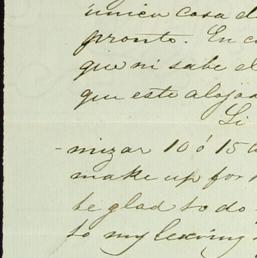 única casa d
pronto. En c
que ni sabe el
que este alojad
Si
- mizar 10 ó 15 d
make up for
be glad to do
to my leaving